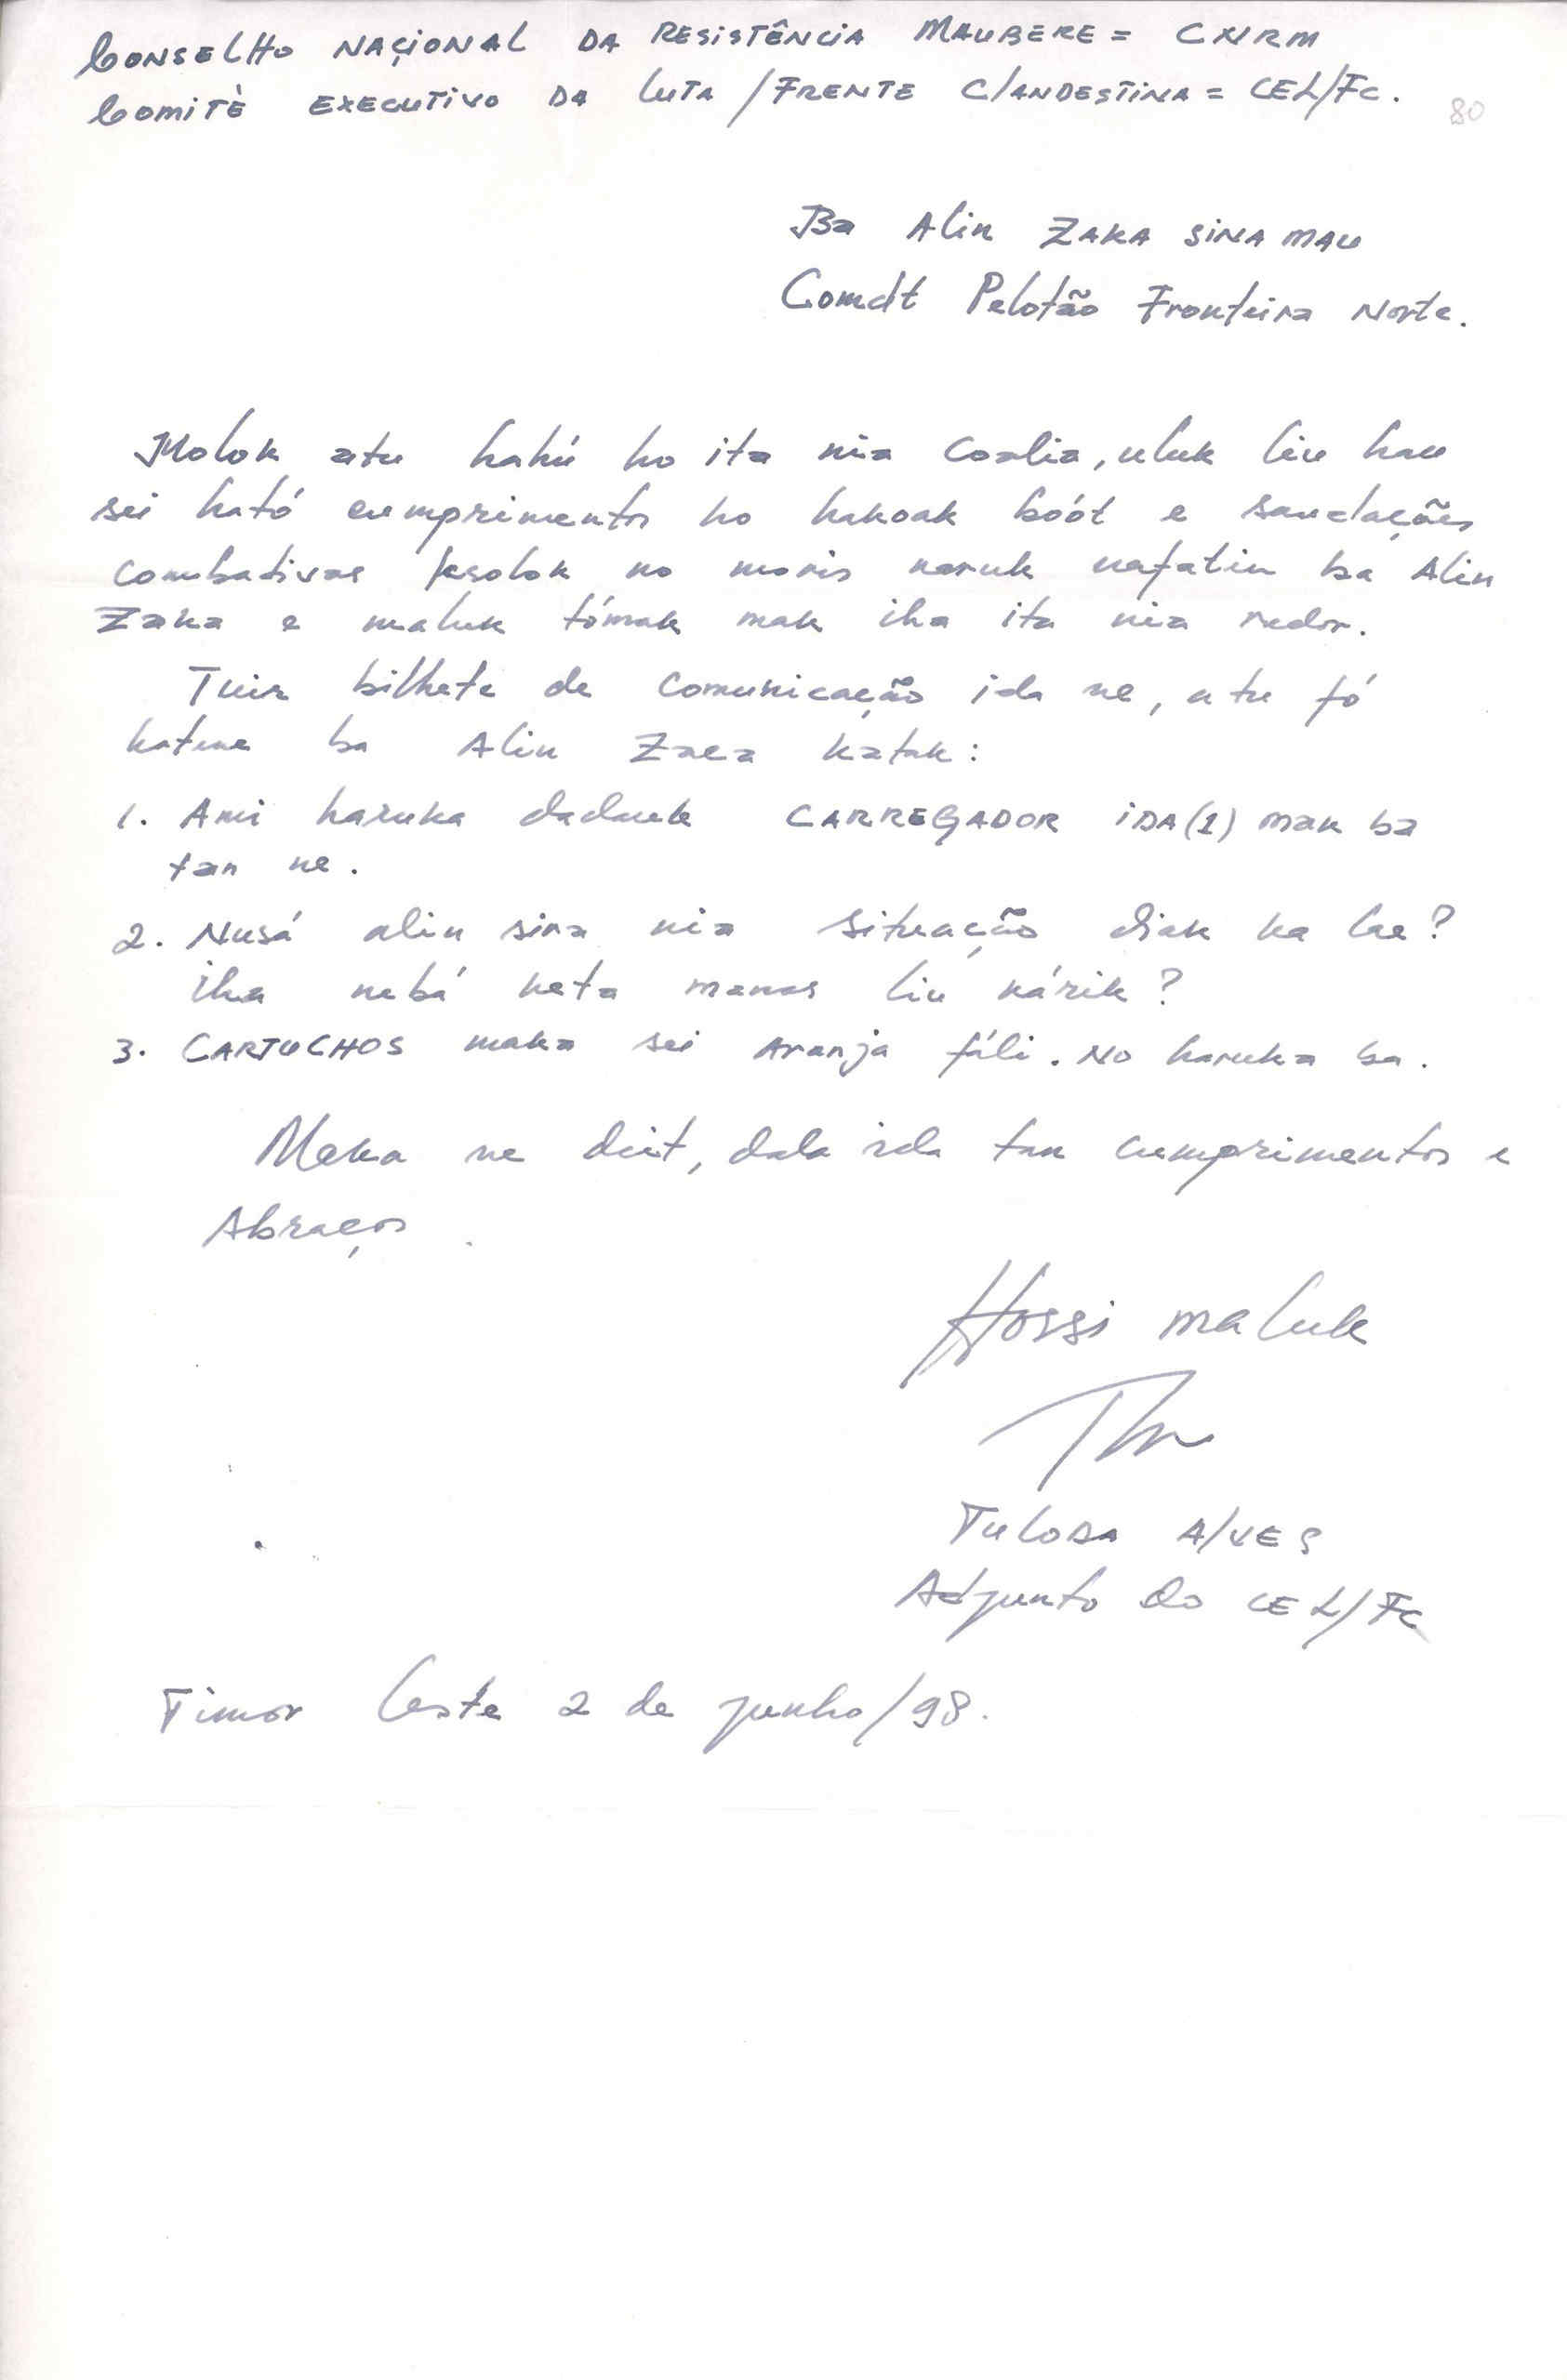 CONSELHO NAÇIONAL DA RESISTÊNCIA MAUBERE = CNRM
COMITÈ EXECUTIVO DA LUTA / FRENTE CLANDESTINA = CEL/FC.
80
Ba Alin ZAKA SINA MAU
Comdt Pelotão Fronteira Norte.
Molok atu hahú ho ita nia coalia, uluk liu hau
sei ható cumprimentos ho hakoak bóót e saudações
combativas ksolok no moris naruk nafatin ba Alin
Zaka e maluk tómak mak iha ita nia redor.
Tuir bilhete de comunicação ida ne, atu fó
hatene ba Alin Zaca katak:
1. Ami haruka dadauk CARREGADOR IDA(1) mak ba
tan ne.
2. Nusá alin sira nia situação diak ka lae?
iha nebá neta manas liu kárik?
3. CARTUCHOS maka sei Aranja fáli. No haruka ba.
Maka ne deit, dala ida tan cumprimentos e
Abraços.
Hossi maluk
Tuloda Alves
Adjunto do CEL/FC
Timor Leste 2 de junho/98.